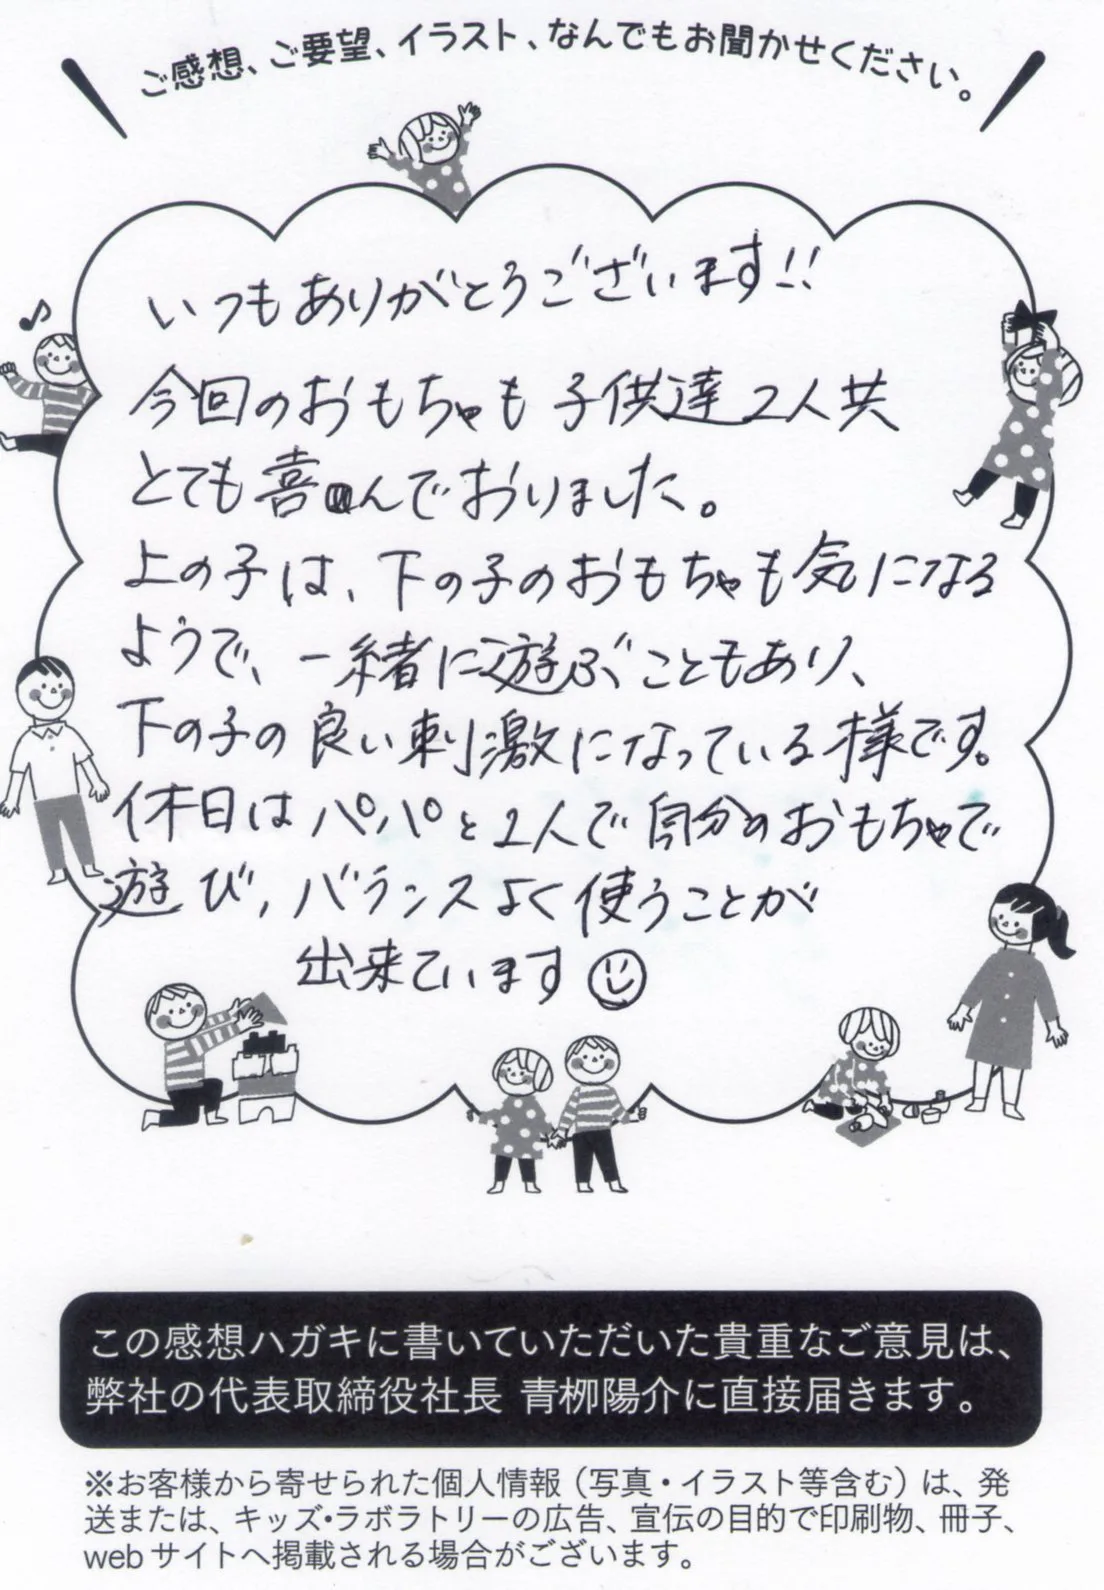 ご感想、ご要望、イラスト、なんでもお聞かせください。
いつもありがとうございます!!
今回のおもちゃも子供達2人共
とても喜んでおりました。
上の子は、下の子のおもちゃも気になる
ようで、一緒に遊ぶこともあり、
下の子の良い刺激になっている様です。
休日はパパと2人で自分のおもちゃで
遊び、バランスよく使うことが
出来ています
この感想ハガキに書いていただいた貴重なご意見は、
弊社の代表取締役社長 青栁陽介に直接届きます。
※お客様から寄せられた個人情報（写真・イラスト等含む）は、発
送または、キッズ・ラボラトリーの広告、宣伝の目的で印刷物、冊子、
webサイトへ掲載される場合がございます。